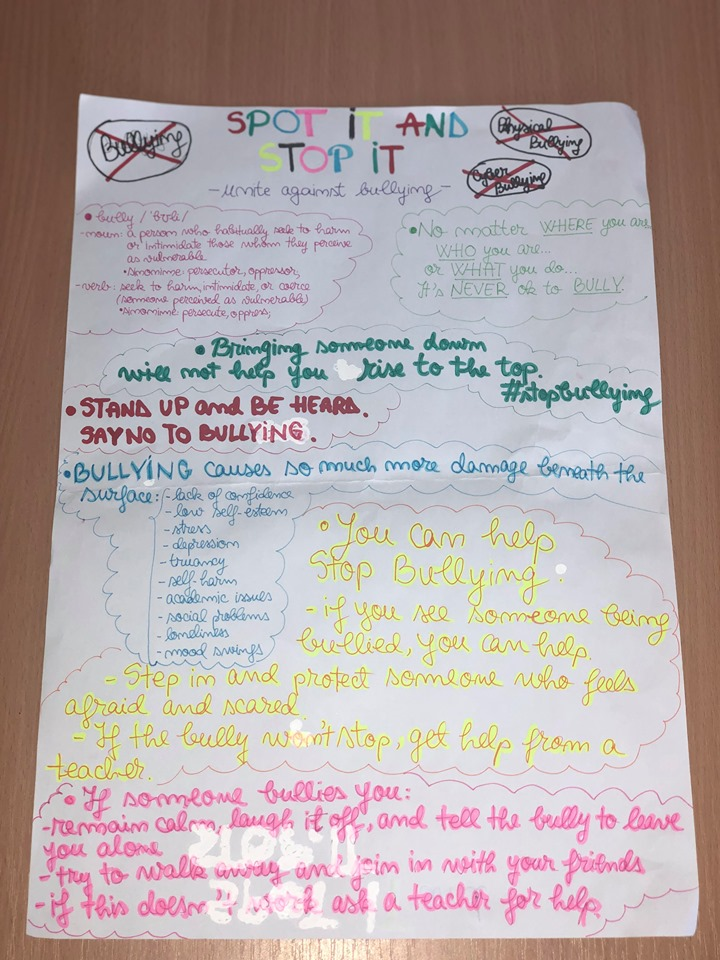 Bullying
SPOT iT AND
STOP iT
- unite against bullying -
Physical
Bullying
Cyber
Bullying
• bully /'bʊli/
- noun: a person who habitually seek to harm
or intimidate those whom they perceive
as vulnerable
• sinonime: persecutor, oppressor,
- verb: seek to harm, intimidate, or coerce
(someone perceived as vulnerable)
• sinonime: persecute, oppress;
• No matter WHERE you are
WHO you are...
or WHAT you do...
It's NEVER ok to BULLY.
• Bringing someone down
will not help you rise to the top.
#stopbullying
• STAND UP and BE HEARD.
SAY NO TO BULLYING.
• BULLYING causes so much more damage beneath the
surface:
- lack of confidence
- low self-esteem
- stress
- depression
- truancy
- self-harm
- academic issues
- social problems
- loneliness
- mood swings
• You can help
Stop Bullying.
- if you see someone being
bullied, you can help.
- Step in and protect someone who feels
afraid and scared.
- If the bully won't stop, get help from a
teacher.
• If someone bullies you:
- remain calm, laugh it off, and tell the bully to leave
you alone
- try to walk away and join in with your friends
- if this doesn't work ask a teacher for help